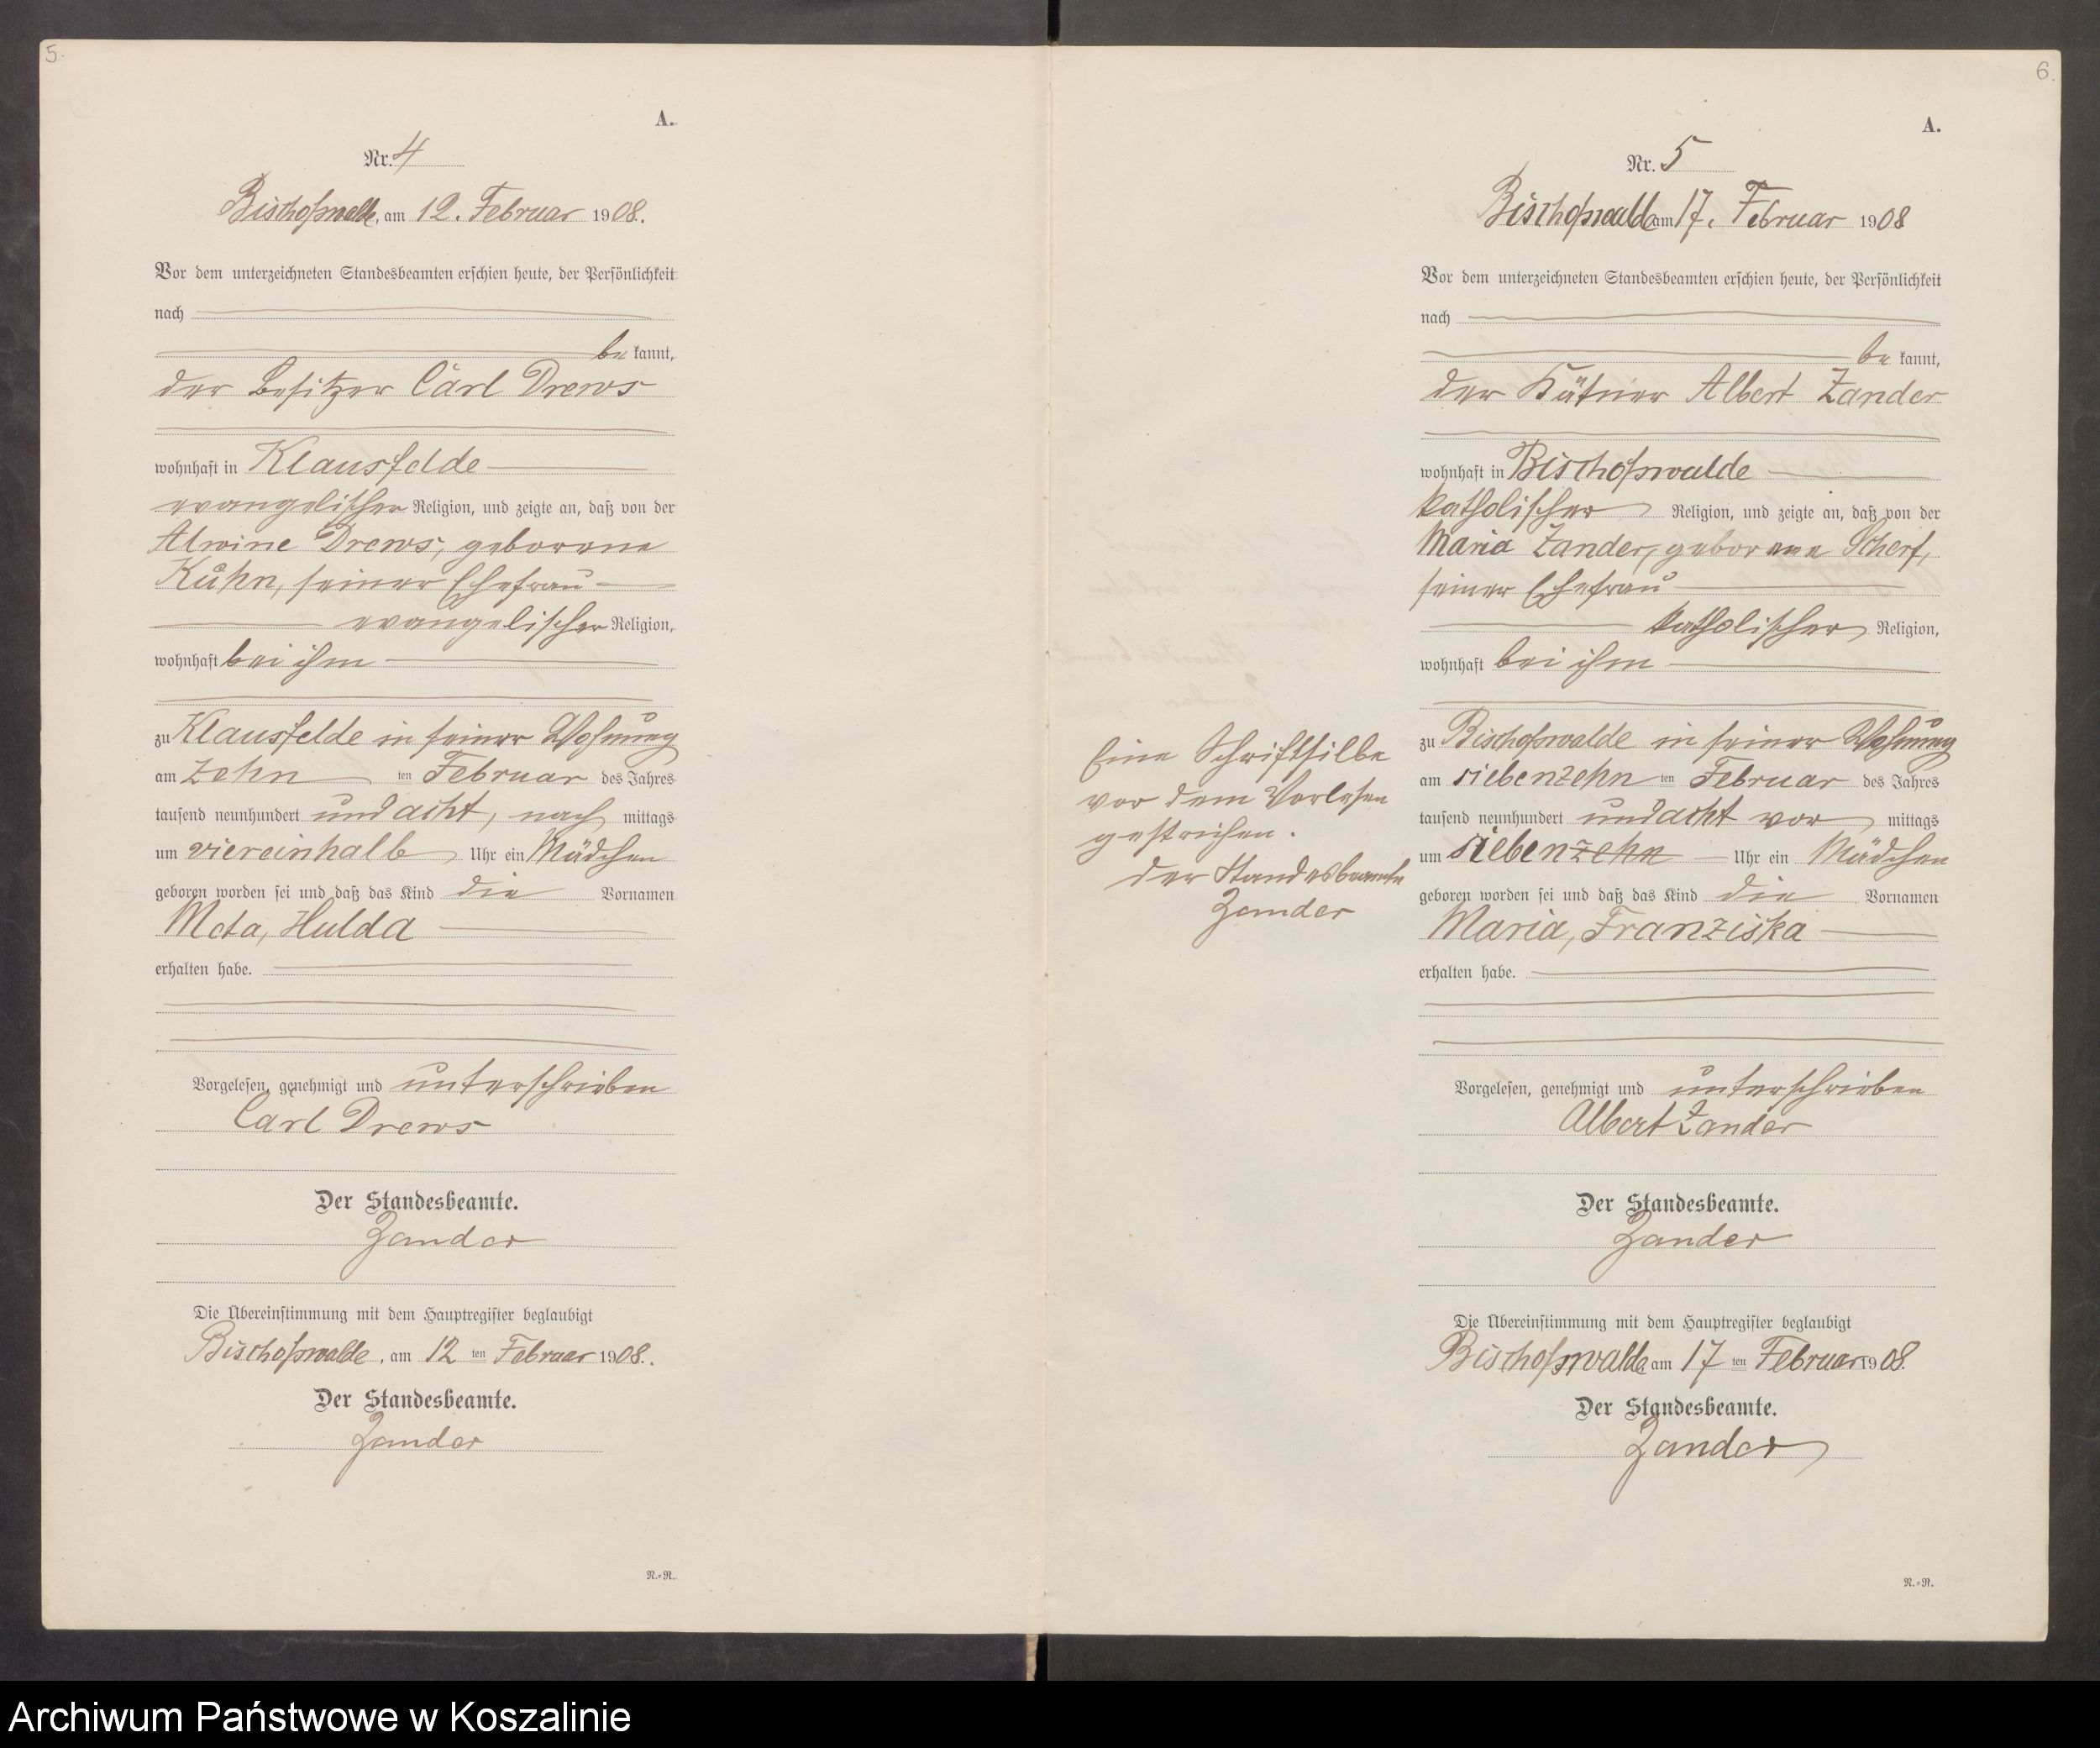 5.
A.
Nr. 4
Bischofswalde, am 12. Februar 1908.
Vor dem unterzeichneten Standesbeamten erschien heute, der Persönlichkeit
nach
be kannt,
der Besitzer Carl Drews
wohnhaft in Klausfelde
evangelischer Religion, und zeigte an, daß von der
Alwine Drews, geborene
Kühn, seiner Ehefrau
evangelischer Religion,
wohnhaft bei ihm
zu Klausfelde in seiner Wohnung
am zehn ten Februar des Jahres
tausend neunhundert und acht, nach mittags
um viereinhalb Uhr ein Mädchen
geboren worden sei und daß das Kind die Vornamen
Meta, Hulda
erhalten habe.
Vorgelesen, genehmigt und unterschrieben
Carl Drews
Der Standesbeamte.
Zander
Die Übereinstimmung mit dem Hauptregister beglaubigt
Bischofswalde, am 12 ten Februar 1908.
Der Standesbeamte.
Zander
N.=R.
6.
A.
Nr. 5
Bischofswalde am 17. Februar 1908
Vor dem unterzeichneten Standesbeamten erschien heute, der Persönlichkeit
nach
be kannt,
der Kätner Albert Zander
wohnhaft in Bischofswalde
katholischer Religion, und zeigte an, daß von der
Maria Zander, geborene Scherf,
seiner Ehefrau
katholischer Religion,
wohnhaft bei ihm
zu Bischofswalde in seiner Wohnung
am siebenzehn ten Februar des Jahres
tausend neunhundert und acht vor mittags
um siebenzehn Uhr ein Mädchen
geboren worden sei und daß das Kind die Vornamen
Maria, Franziska
erhalten habe.
Eine Schriftsilbe
vor dem Vorlesen
gestrichen.
Der Standesbeamte
Zander
Vorgelesen, genehmigt und unterschrieben
Albert Zander
Der Standesbeamte.
Zander
Die Übereinstimmung mit dem Hauptregister beglaubigt
Bischofswalde am 17 ten Februar 1908.
Der Standesbeamte.
Zander
N.=R.
Archiwum Państwowe w Koszalinie